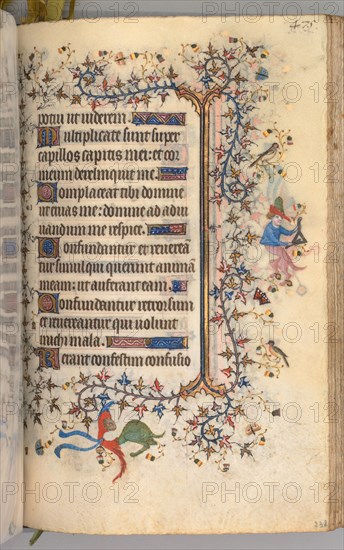 potui ut uiderem
Multiplicate sunt super
capillos capitis mei: et cor
meum derelinquit me
Complaceat tibi domine
ut eruas me: domine ad adiu
uandum me respice.
Confundantur et reuerean
tur simul qui querunt animam
meam: ut auferant eam
Conuertantur retrorsum
et reuereantur qui uolunt
michi mala.
Ferant confestim confusio